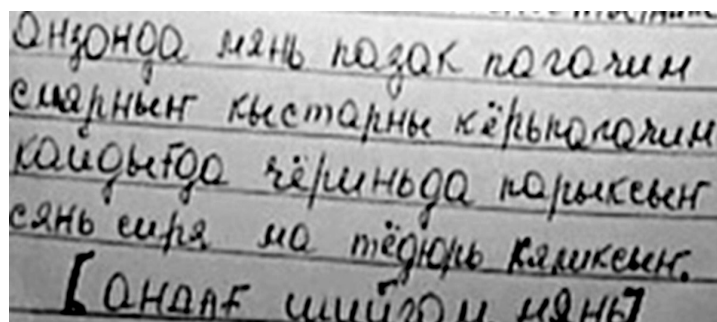 анзонда мянь пазак пагачим
смарнын кыстарны кёрьпагачим
кайдыгда чёриньда парыксын
сянь сиря ма тёдюрь кяликсын.
[андаг шийгом мянь]